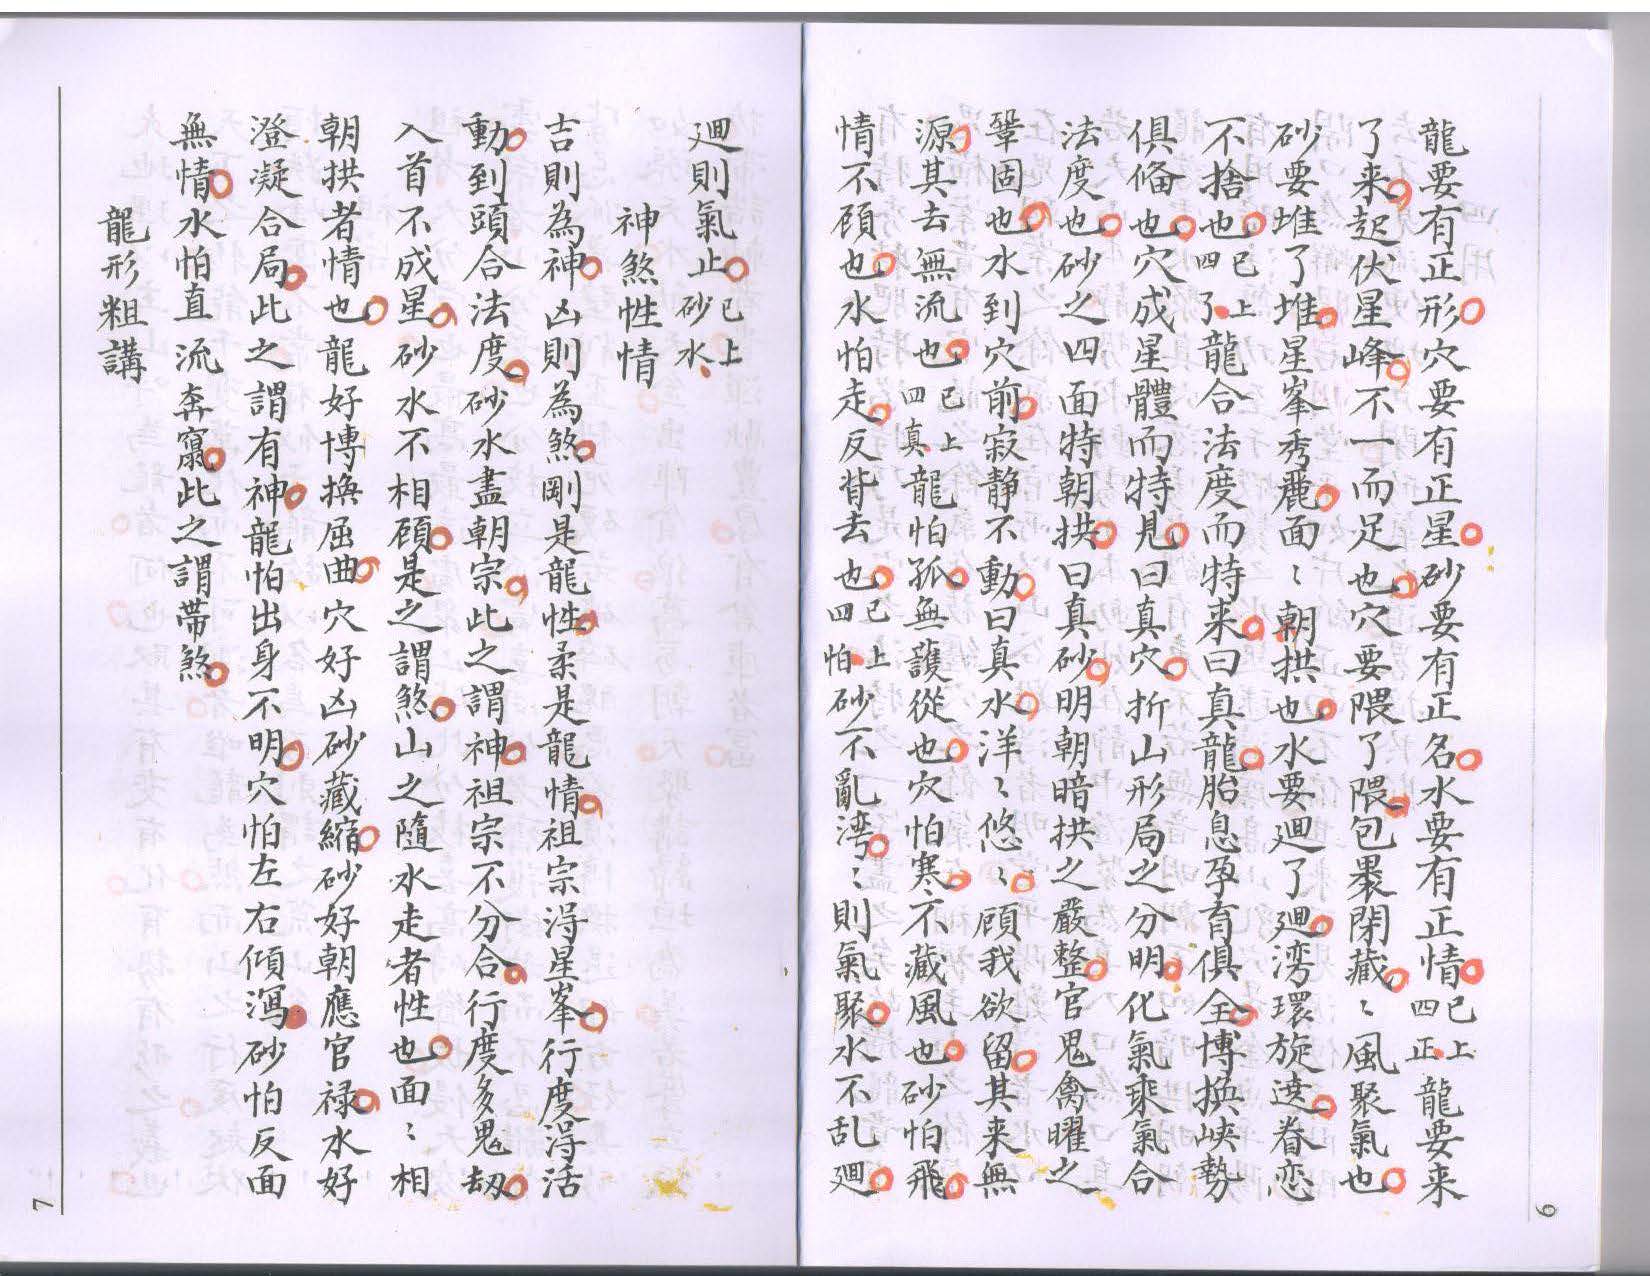 龍要有正形穴要有正星砂要有正名水要有正情已上四正龍要来
了来起伏星峰不一而足也穴要隈了隈包裹閉藏〻風聚氣也
砂要堆了堆星峯秀麗面〻朝拱也水要廻了廻湾環旋遶眷恋
不捨也已上四了龍合法度而特来曰真龍胎息孕育俱全博換峽勢
俱偹也穴成星體而特見曰真穴折山形局之分明化氣乘氣合
法度也砂之四面特朝拱曰真砂明朝暗拱之嚴整官鬼禽曜之
鞏固也水到穴前寂静不動曰真水洋〻悠〻顧我欲留其来無
源其去無流也已上四真龍怕孤無護從也穴怕寒不藏風也砂怕飛
情不顧也水怕走反背去也已上四怕砂不亂湾〻則氣聚水不乱廻
廻則氣止已上砂水
神煞性情
吉則為神凶則為煞剛是龍性柔是龍情祖宗淂星峯行度淂活
動到頭合法度砂水盡朝宗此之謂神祖宗不分合行度多鬼刧
入首不成星砂水不相顧是之謂煞山之隨水走者性也面〻相
朝拱者情也龍好博換屈曲穴好凶砂藏縮砂好朝應官禄水好
澄凝合局此之謂有神龍怕出身不明穴怕左右傾瀉砂怕反面
無情水怕直流奔竄此之謂帶煞
龍形粗講
6
7